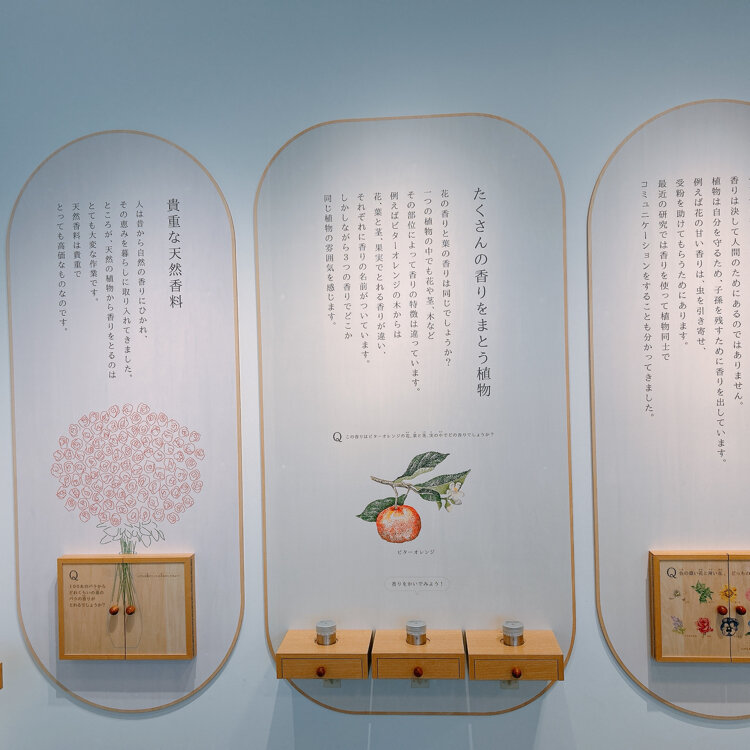 香りは決して人間のためにあるのではありません。
植物は自分を守るため、子孫を残すために香りを出しています。
例えば花の甘い香りは、虫を引き寄せ、
受粉を助けてもらうためにあります。
最近の研究では香りを使って植物同士で
コミュニケーションをすることも分かってきました。
Q
たくさんの香りをまとう植物
花の香りと葉の香りは同じでしょうか?
一つの植物の中でも花や茎、木など
その部位によって香りの特徴は違っています。
例えばビターオレンジの木からは
花、葉と茎、果実でとれる香りが違い、
それぞれに香りの名前がついています。
しかしながら3つの香りでどこか
同じ植物の雰囲気を感じます。
Q この香りはビターオレンジの花、葉と茎、実の中でどの香りでしょうか?
ビターオレンジ
香りをかいでみよう!
貴重な天然香料
人は昔から自然の香りにひかれ、
その恵みを暮らしに取り入れてきました。
ところが、天然の植物から香りをとるのは
とても大変な作業です。
天然香料は貴重で
とっても高価なものなのです。
Q
100本のバラから
どれくらいの量の
バラの香りが
とれるでしょうか?